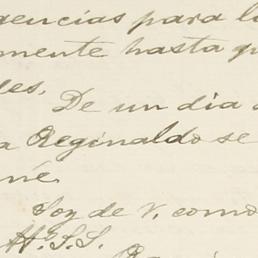 gencias para l
mente hasta qu
les.
De un dia a
a Reginaldo se
né.
Soy de V. como
S. S.